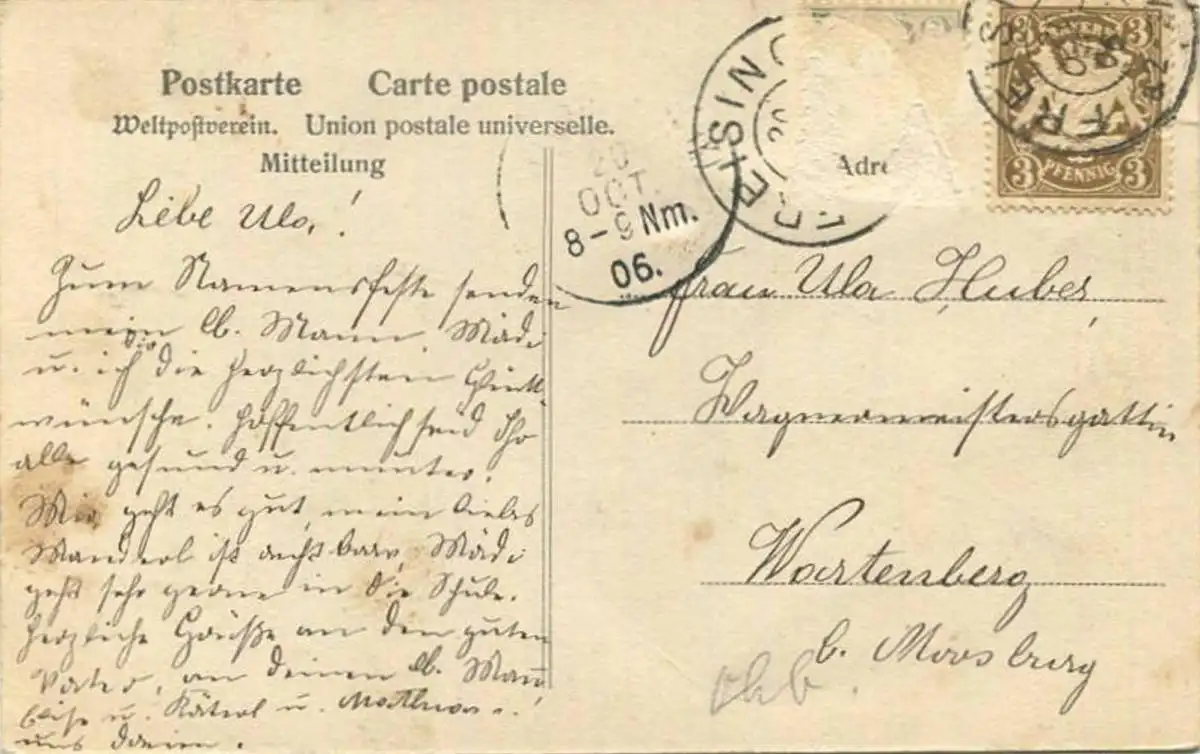 Postkarte Carte postale
Weltpostverein. Union postale universelle.
Mitteilung
Liebe Ula!
Zum Namensfeste senden
mein lb. Mann, Mädi
u. ich dir die herzlichsten Glück-
wünsche. Hoffentlich seid Ihr
alle gesund u. munter.
Mir geht es gut, mein liebes
Manderl ist Mädi
geht sehr gerne in die Schule.
Herzliche Grüße an den guten
Vater, an deinen lb. Mann
u. u.
uns dreien.
20
OCT.
8-9 Nm.
06.
FREISING
FREISING
3 3
3 PFENNIG 3
Adre
Frau Ula Huber,
Wagnermeistersgattin
Wartenberg
b. Moosburg